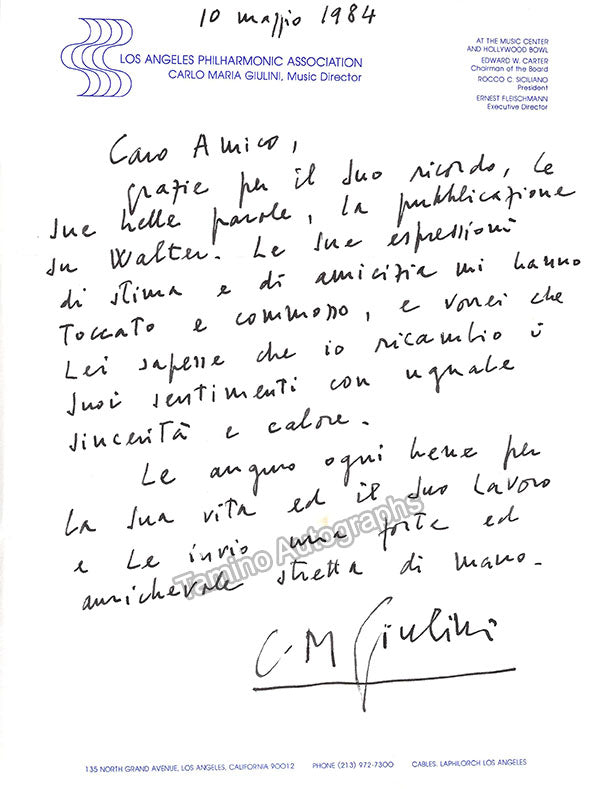 10 maggio 1984
LOS ANGELES PHILHARMONIC ASSOCIATION
CARLO MARIA GIULINI, Music Director
AT THE MUSIC CENTER
AND HOLLYWOOD BOWL
EDWARD W. CARTER
Chairman of the Board
ROCCO C. SICILIANO
President
ERNEST FLEISCHMANN
Executive Director
Caro Amico,
grazie per il Suo ricordo, le
Sue belle parole, la pubblicazione
su Walter. Le Sue espressioni
di stima e di amicizia mi hanno
toccato e commosso, e vorrei che
Lei sapesse che io ricambio i
Suoi sentimenti con uguale
sincerità e calore.
Le auguro ogni bene per
la Sua vita ed il Suo lavoro
e Le invio una forte ed
amichevole stretta di mano.
C M Giulini
Tamino Autographs
135 NORTH GRAND AVENUE, LOS ANGELES, CALIFORNIA 90012 PHONE (213) 972-7300 CABLES, LAPHILORCH LOS ANGELES